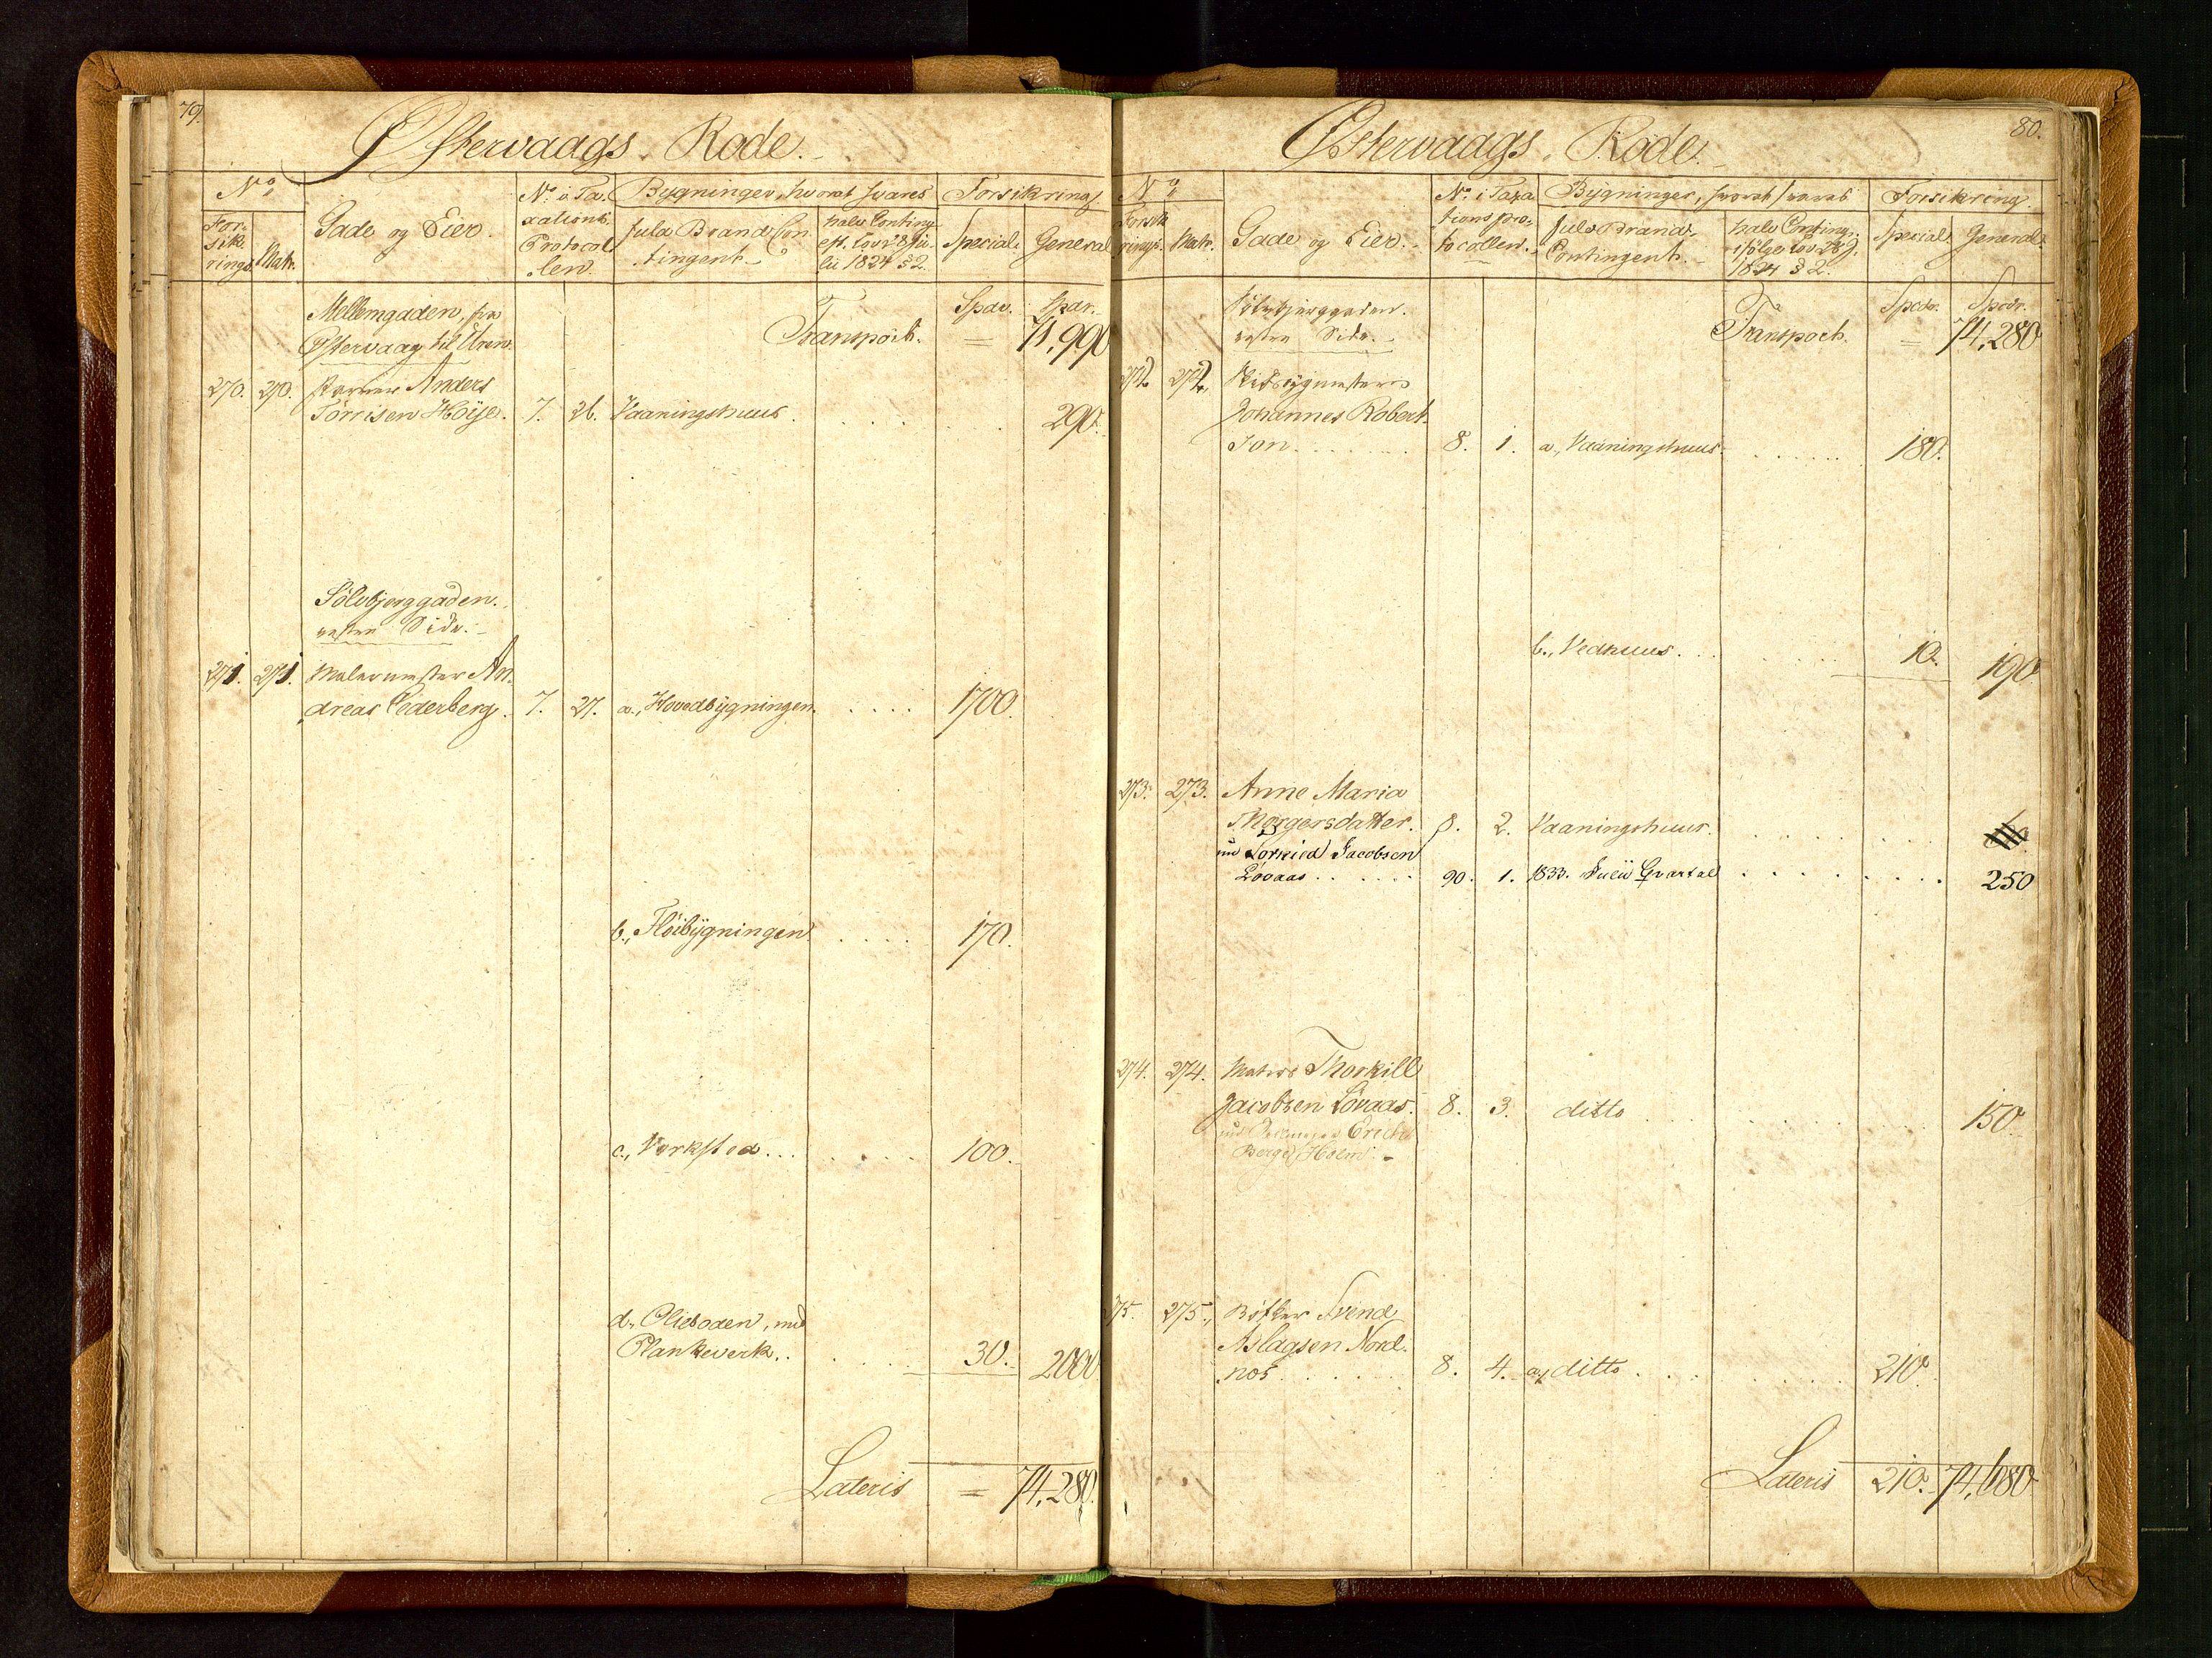 79.
Østervaags Rode.
No
For-
sik-
rings
Matr.
Gade og Eier.
No i Ta-
xations
Protocol
len.
Bygninger, hvoraf svares
fuld Brand Con
tingent
halv Conting.
eft. Lov 28 Ju-
lii 1824 § 2.
Forsikring
Special.
General
Mellemgaden, fra
Østervaag til Uren.
Transport.
Spdr.
=
Spdr.
71,990
270. 270.
Anders
Tørrisen Høije. 7. 26. Vaaningshuus. 290.
Sölvbjerggaden.
vestre Side.
271. 271. Malermester An-
dreas Cederberg. 7. 27. a., Hovedbygningen. 1700.
b., Fløibygningen. 170.
c., Verksted... 100.
d., Olieboden, med
Plankeverk.. 30. 2000
Lateris = 74,280.
80.
Østervaags Rode.
No
Forsik
rings.
Matr.
Gade og Eier.
No i Taxa
tionspro-
tocollen.
Bygninger, hvoraf svares
fuld Brand-
Contingent.
halv Conting.
ifølge Lov 28 J.
1824 § 2.
Forsikring.
Special.
General.
Sölvbjerggaden.
vestre Side.
Transport.
Spdr.
=
Spdr.
74,280
272 272. Skibbygmester
Johannes Robert-
son. 8. 1. a., Vaaningshuus. 180.
b., Vedhuus. 10. 190
273. 273. Anne Maria
Thorgersdatter. 8. 2. Vaaningshuus.
nu Torkild Jacobsen
Løvaas 90. 1. 1833. Julii Qvartal 250
274. 274. Matros Thorkill
Jacobsen Løvaas. 8. 3. ditto 150
nu Erich
Berge Holm.
275. 275. Bødker Svend
Aslagsen Nord-
nos 8. 4. a., ditto 210
Lateris 210. 74,080